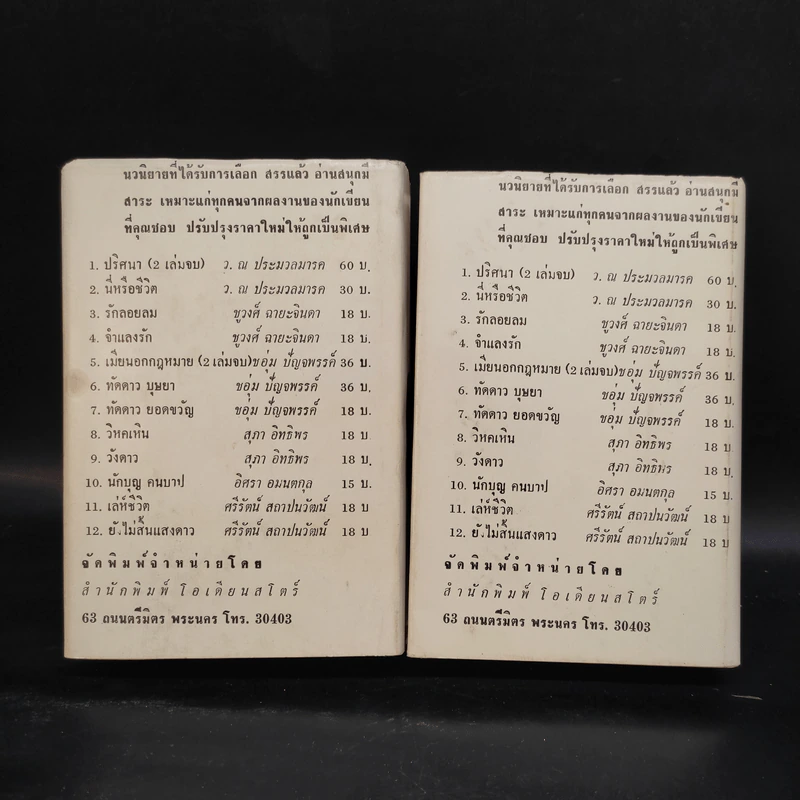 นวนิยายที่ได้รับการเลือก สรรแล้ว อ่านสนุกมี
สาระ เหมาะแก่ทุกคนจากผลงานของนักเขียน
ที่คุณชอบ ปรับปรุงราคาใหม่ให้ถูกเป็นพิเศษ
1. ปริศนา (2 เล่มจบ) ว. ณ ประมวลมารค 60 บ.
2. นี่หรือชีวิต ว. ณ ประมวลมารค 30 บ.
3. รักลอยลม ชูวงศ์ ฉายะจินดา 18 บ.
4. จำแลงรัก ชูวงศ์ ฉายะจินดา 18 บ.
5. เมียนอกกฎหมาย (2 เล่มจบ) ชอุ่ม ปัญจพรรค์ 36 บ.
6. ทัดดาว บุษยา ชอุ่ม ปัญจพรรค์ 36 บ.
7. ทัดดาว ยอดขวัญ ชอุ่ม ปัญจพรรค์ 18 บ.
8. วิหคเหิน สุภา อิทธิพร 18 บ
9. วังดาว สุภา อิทธิพร 18 บ.
10. นักบุญ คนบาป อิศรา อมนตกุล 15 บ.
11. เล่ห์ชีวิต ศรีรัตน์ สถาปนวัฒน์ 18 บ
12. ยังไม่สิ้นแสงดาว ศรีรัตน์ สถาปนวัฒน์ 18 บ
จัดพิมพ์จำหน่ายโดย
สำนักพิมพ์ โอเดียนสโตร์
63 ถนนตรีมิตร พระนคร โทร. 30403
นวนิยายที่ได้รับการเลือก สรรแล้ว อ่านสนุกมี
สาระ เหมาะแก่ทุกคนจากผลงานของนักเขียน
ที่คุณชอบ ปรับปรุงราคาใหม่ให้ถูกเป็นพิเศษ
1. ปริศนา (2 เล่มจบ) ว. ณ ประมวลมารค 60 บ.
2. นี่หรือชีวิต ว. ณ ประมวลมารค 30 บ.
3. รักลอยลม ชูวงศ์ ฉายะจินดา 18 บ.
4. จำแลงรัก ชูวงศ์ ฉายะจินดา 18 บ.
5. เมียนอกกฎหมาย (2 เล่มจบ) ชอุ่ม ปัญจพรรค์ 36 บ.
6. ทัดดาว บุษยา ชอุ่ม ปัญจพรรค์ 36 บ.
7. ทัดดาว ยอดขวัญ ชอุ่ม ปัญจพรรค์ 18 บ.
8. วิหคเหิน สุภา อิทธิพร 18 บ
9. วังดาว สุภา อิทธิพร 18 บ.
10. นักบุญ คนบาป อิศรา อมนตกุล 15 บ.
11. เล่ห์ชีวิต ศรีรัตน์ สถาปนวัฒน์ 18 บ
12. ยังไม่สิ้นแสงดาว ศรีรัตน์ สถาปนวัฒน์ 18 บ
จัดพิมพ์จำหน่ายโดย
สำนักพิมพ์ โอเดียนสโตร์
63 ถนนตรีมิตร พระนคร โทร. 30403